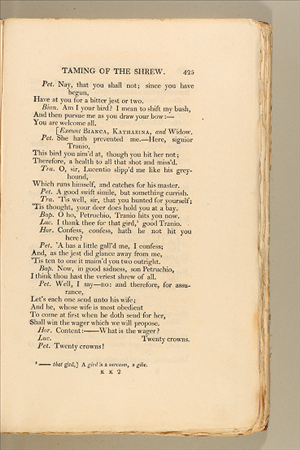 TAMING OF THE SHREW. 425
Pet. Nay, that you shall not; since you have
begun,
Have at you for a bitter jest or two.
Bian. Am I your bird? I mean to shift my bush,
And then pursue me as you draw your bow:—
You are welcome all.
[Exeunt BIANCA, KATHARINA, and Widow.
Pet. She hath prevented me.—Here, signior
Tranio,
This bird you aim'd at, though you hit her not;
Therefore, a health to all that shot and miss'd.
Tra. O, sir, Lucentio slipp'd me like his grey-
hound,
Which runs himself, and catches for his master.
Pet. A good swift simile, but something currish.
Tra. 'Tis well, sir, that you hunted for yourself;
'Tis thought, your deer does hold you at a bay.
Bap. O ho, Petruchio, Tranio hits you now.
Luc. I thank thee for that gird,¹ good Tranio.
Hor. Confess, confess, hath he not hit you
here?
Pet. 'A has a little gall'd me, I confess;
And, as the jest did glance away from me,
'Tis ten to one it maim'd you two outright.
Bap. Now, in good sadness, son Petruchio,
I think thou hast the veriest shrew of all.
Pet. Well, I say—no: and therefore, for assu-
rance,
Let's each one send unto his wife;
And he, whose wife is most obedient
To come at first when he doth send for her,
Shall win the wager which we will propose.
Hor. Content:——What is the wager?
Luc. Twenty crowns.
Pet. Twenty crowns!
¹ —— that gird,] A gird is a sarcasm, a gibe.
K K 2